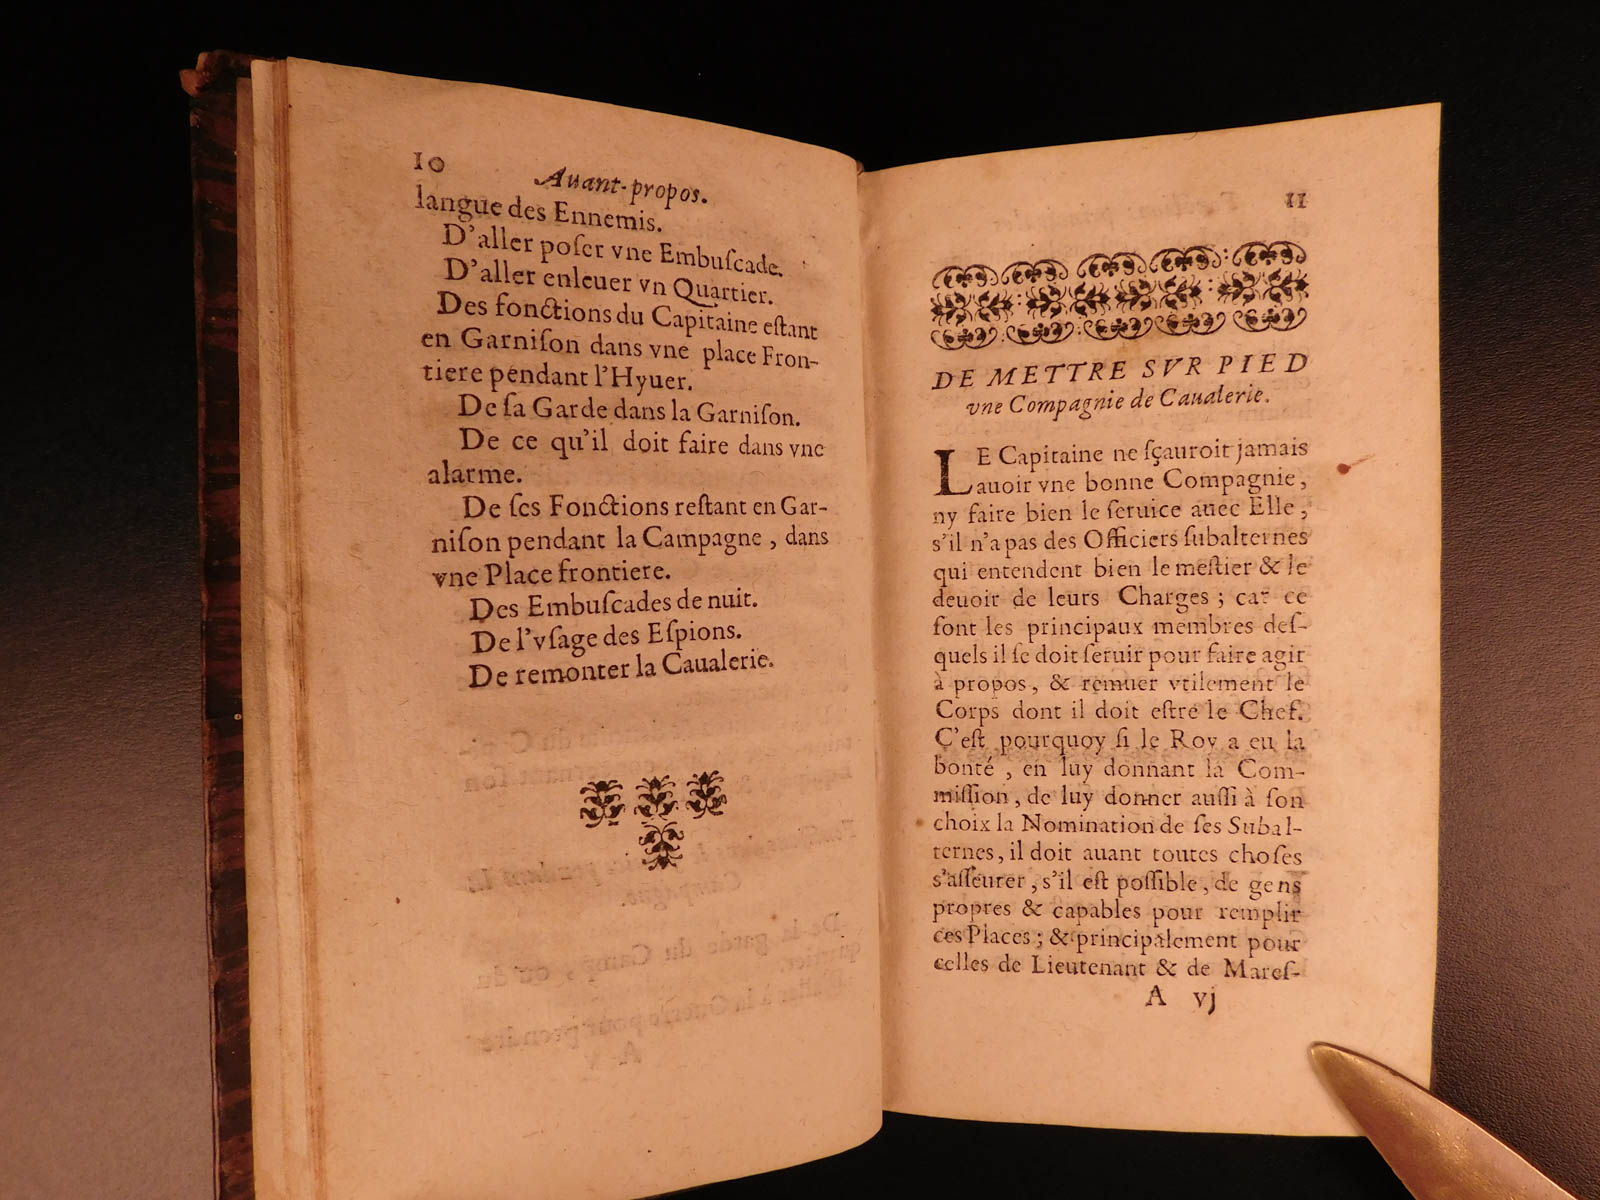 10
Auant-propos.
langue des Ennemis.
D'aller poſer vne Embuſcade.
D'aller enleuer vn Quartier.
Des fonctions du Capitaine eſtant
en Garniſon dans vne place Fron-
tiere pendant l'Hyuer.
De ſa Garde dans la Garniſon.
De ce qu'il doit faire dans vne
alarme.
De ſes Fonctions reſtant en Gar-
niſon pendant la Campagne , dans
vne Place frontiere.
Des Embuſcades de nuit.
De l'vſage des Eſpions.
De remonter la Caualerie.
11
DE METTRE SVR PIED
vne Compagnie de Caualerie.
LE Capitaine ne ſçauroit jamais
auoir vne bonne Compagnie ,
ny faire bien le ſeruice auec Elle ,
s'il n'a pas des Officiers ſubalternes
qui entendent bien le meſtier & le
deuoir de leurs Charges ; car ce
ſont les principaux membres deſ-
quels il ſe doit ſeruir pour faire agir
à propos , & remuer vtilement le
Corps dont il doit eſtre le Chef.
C'eſt pourquoy ſi le Roy a eu la
bonté , en luy donnant la Com-
miſſion , de luy donner auſſi à ſon
choix la Nomination de ſes Subal-
ternes , il doit auant toutes choſes
s'aſſeurer , s'il eſt poſſible , de gens
propres & capables pour remplir
ces Places ; & principalement pour
celles de Lieutenant & de Mareſ-
A vj